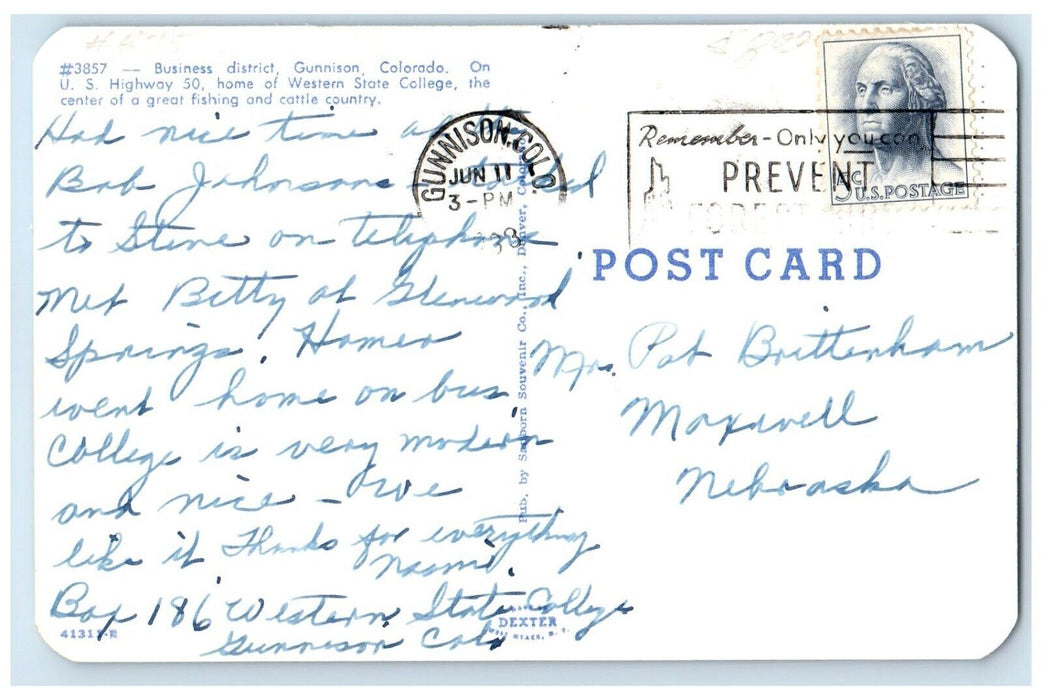 #3857 — Business district, Gunnison, Colorado. On
U. S. Highway 50, home of Western State College, the
center of a great fishing and cattle country.
Had nice time at
Bob Johnsons
to Steve on telephone
Met Betty at Glenwood
Springs. Homer
went home on bus
College is very modern
and nice - we
like it Thanks for everything
Naomi.
Box 186 Western State College
Gunnison Colo
41311-E
DEXTER
WEST NYACK, N. Y.
Pub. by Sanborn Souvenir Co., Inc., Denver, Colo.
GUNNISON, COLO.
JUN 11
3-PM
Remember - Only you can
PREVENT
FOREST
5c
U.S. POSTAGE
POST CARD
Mrs. Pat Brittenham
Maxwell
Nebraska